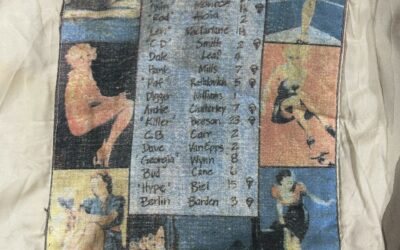 "Rod"
"Len" Macfarlane 14
"C.D" Smith 2
Dale Leaf 4
Hank Mills 7
"Pop" 5
Digger Williams 1
Archie Chatterley 7
"Killer" Breson 23
C.B. Carr 2
Dave VanEpps 2
"Georgia" Wynn 8
Bud Cane 6
"Hype" Biel 15
Berlin Barden 3